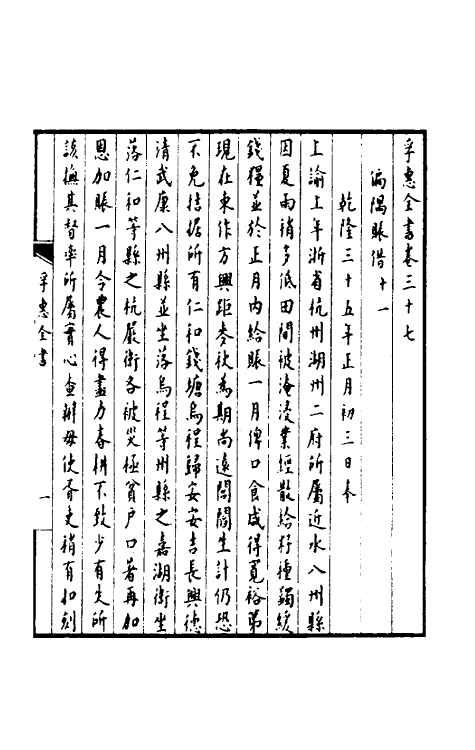 孚惠全書卷三十七
偏隅賑借十一
乾隆三十五年正月初三日奉
上諭上年浙省杭州湖州二府所屬近水八州縣
因夏雨稍多低田間被淹浸業經散給籽種蠲緩
錢糧並於正月內給賑一月俾口食咸得寬裕第
現在東作方興距麥秋為期尚遠閭閻生計仍恐
不免拮据所有仁和錢塘烏程歸安安吉長興德
清武康八州縣並坐落烏程等州縣之嘉湖衛坐
落仁和等縣之杭嚴衛各被災極貧戶口著再加
恩加賑一月令農人得盡力春耕不致少有失所
該撫其督率所屬實心查辦毋使胥吏稍有扣剋
孚惠全書
一